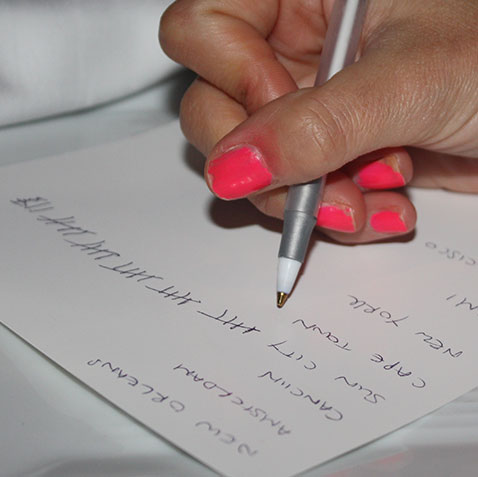 CISCO
MI
NEW YORK
CAPE TOWN
SUN CITY
CANCUN
AMSTERDAM
NEW ORLEANS